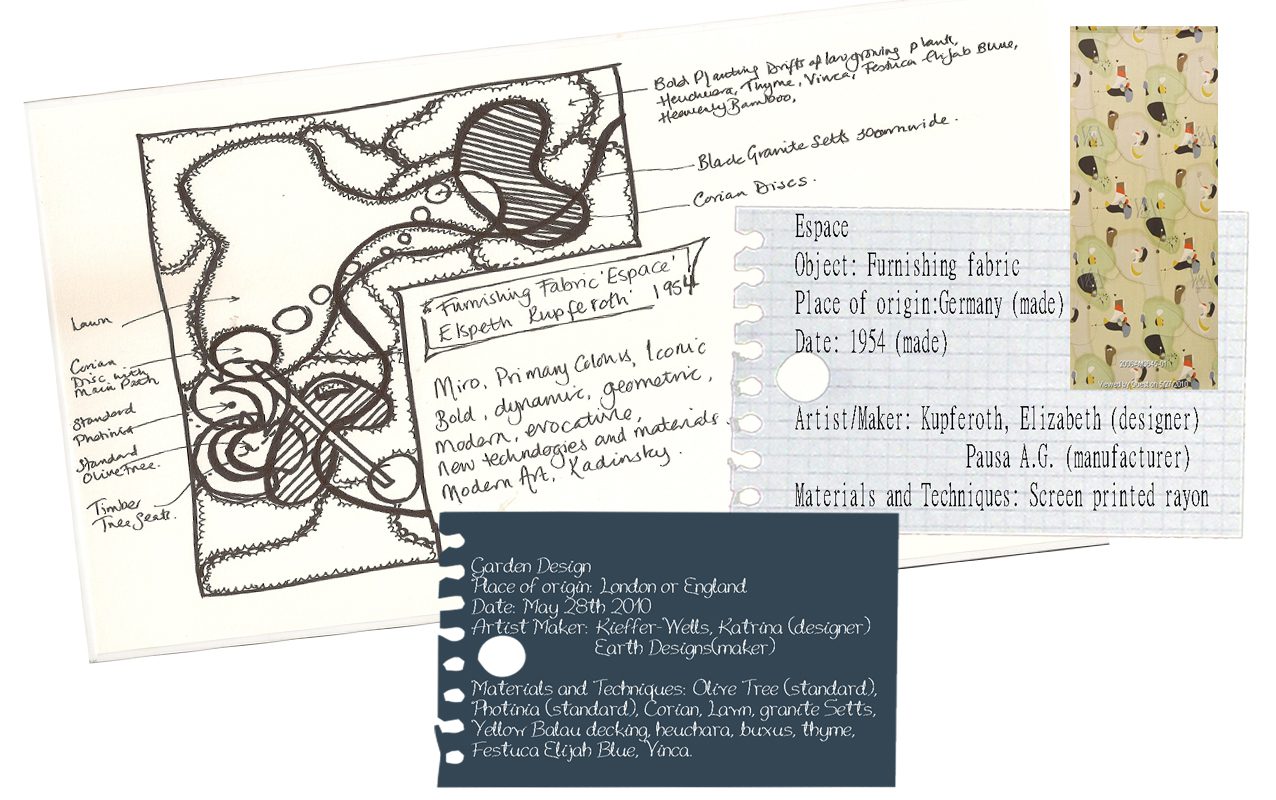 Bold Planting Drifts of low growing plants,
Heuchera, Thyme, Vinca, Festuca Elijah Blue,
Heavenly Bamboo,
Black Granite Setts wide.
Corian Discs.
Lawn
Corian
Disc with
Main Path
Standard
Photinia
Standard
Olive Tree.
Timber
Tree Seats.
Furnishing Fabric 'Espace'
Elspeth Kupferoth 1954
Miro, Primary Colours, Iconic
Bold, dynamic, geometric,
Modern, evocative,
new technologies and materials
Modern Art, Kadinsky.
Espace
Object: Furnishing fabric
Place of origin:Germany (made)
Date: 1954 (made)
Artist/Maker: Kupferoth, Elizabeth (designer)
Pausa A.G. (manufacturer)
Materials and Techniques: Screen printed rayon
Viewed by Question 5/27/2010
Garden Design
Place of origin: London or England
Date: May 28th 2010
Artist Maker: Kieffer-Wells, Katrina (designer)
Earth Designs(maker)
Materials and Techniques: Olive Tree (standard),
Photinia (standard), Corian, Lawn, granite Setts,
Yellow Balau decking, heuchara, buxus, thyme,
Festuca Elijah Blue, Vinca.